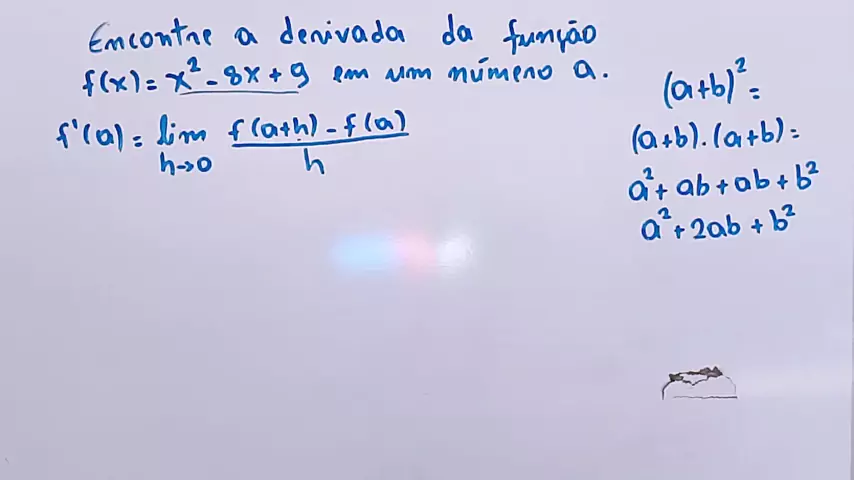 Encontre a derivada da função
f(x) = x² - 8x + 9 em um número a.
f'(a) = lim h→0 f(a+h) - f(a) / h
(a+b)² =
(a+b).(a+b) =
a² + ab + ab + b²
a² + 2ab + b²